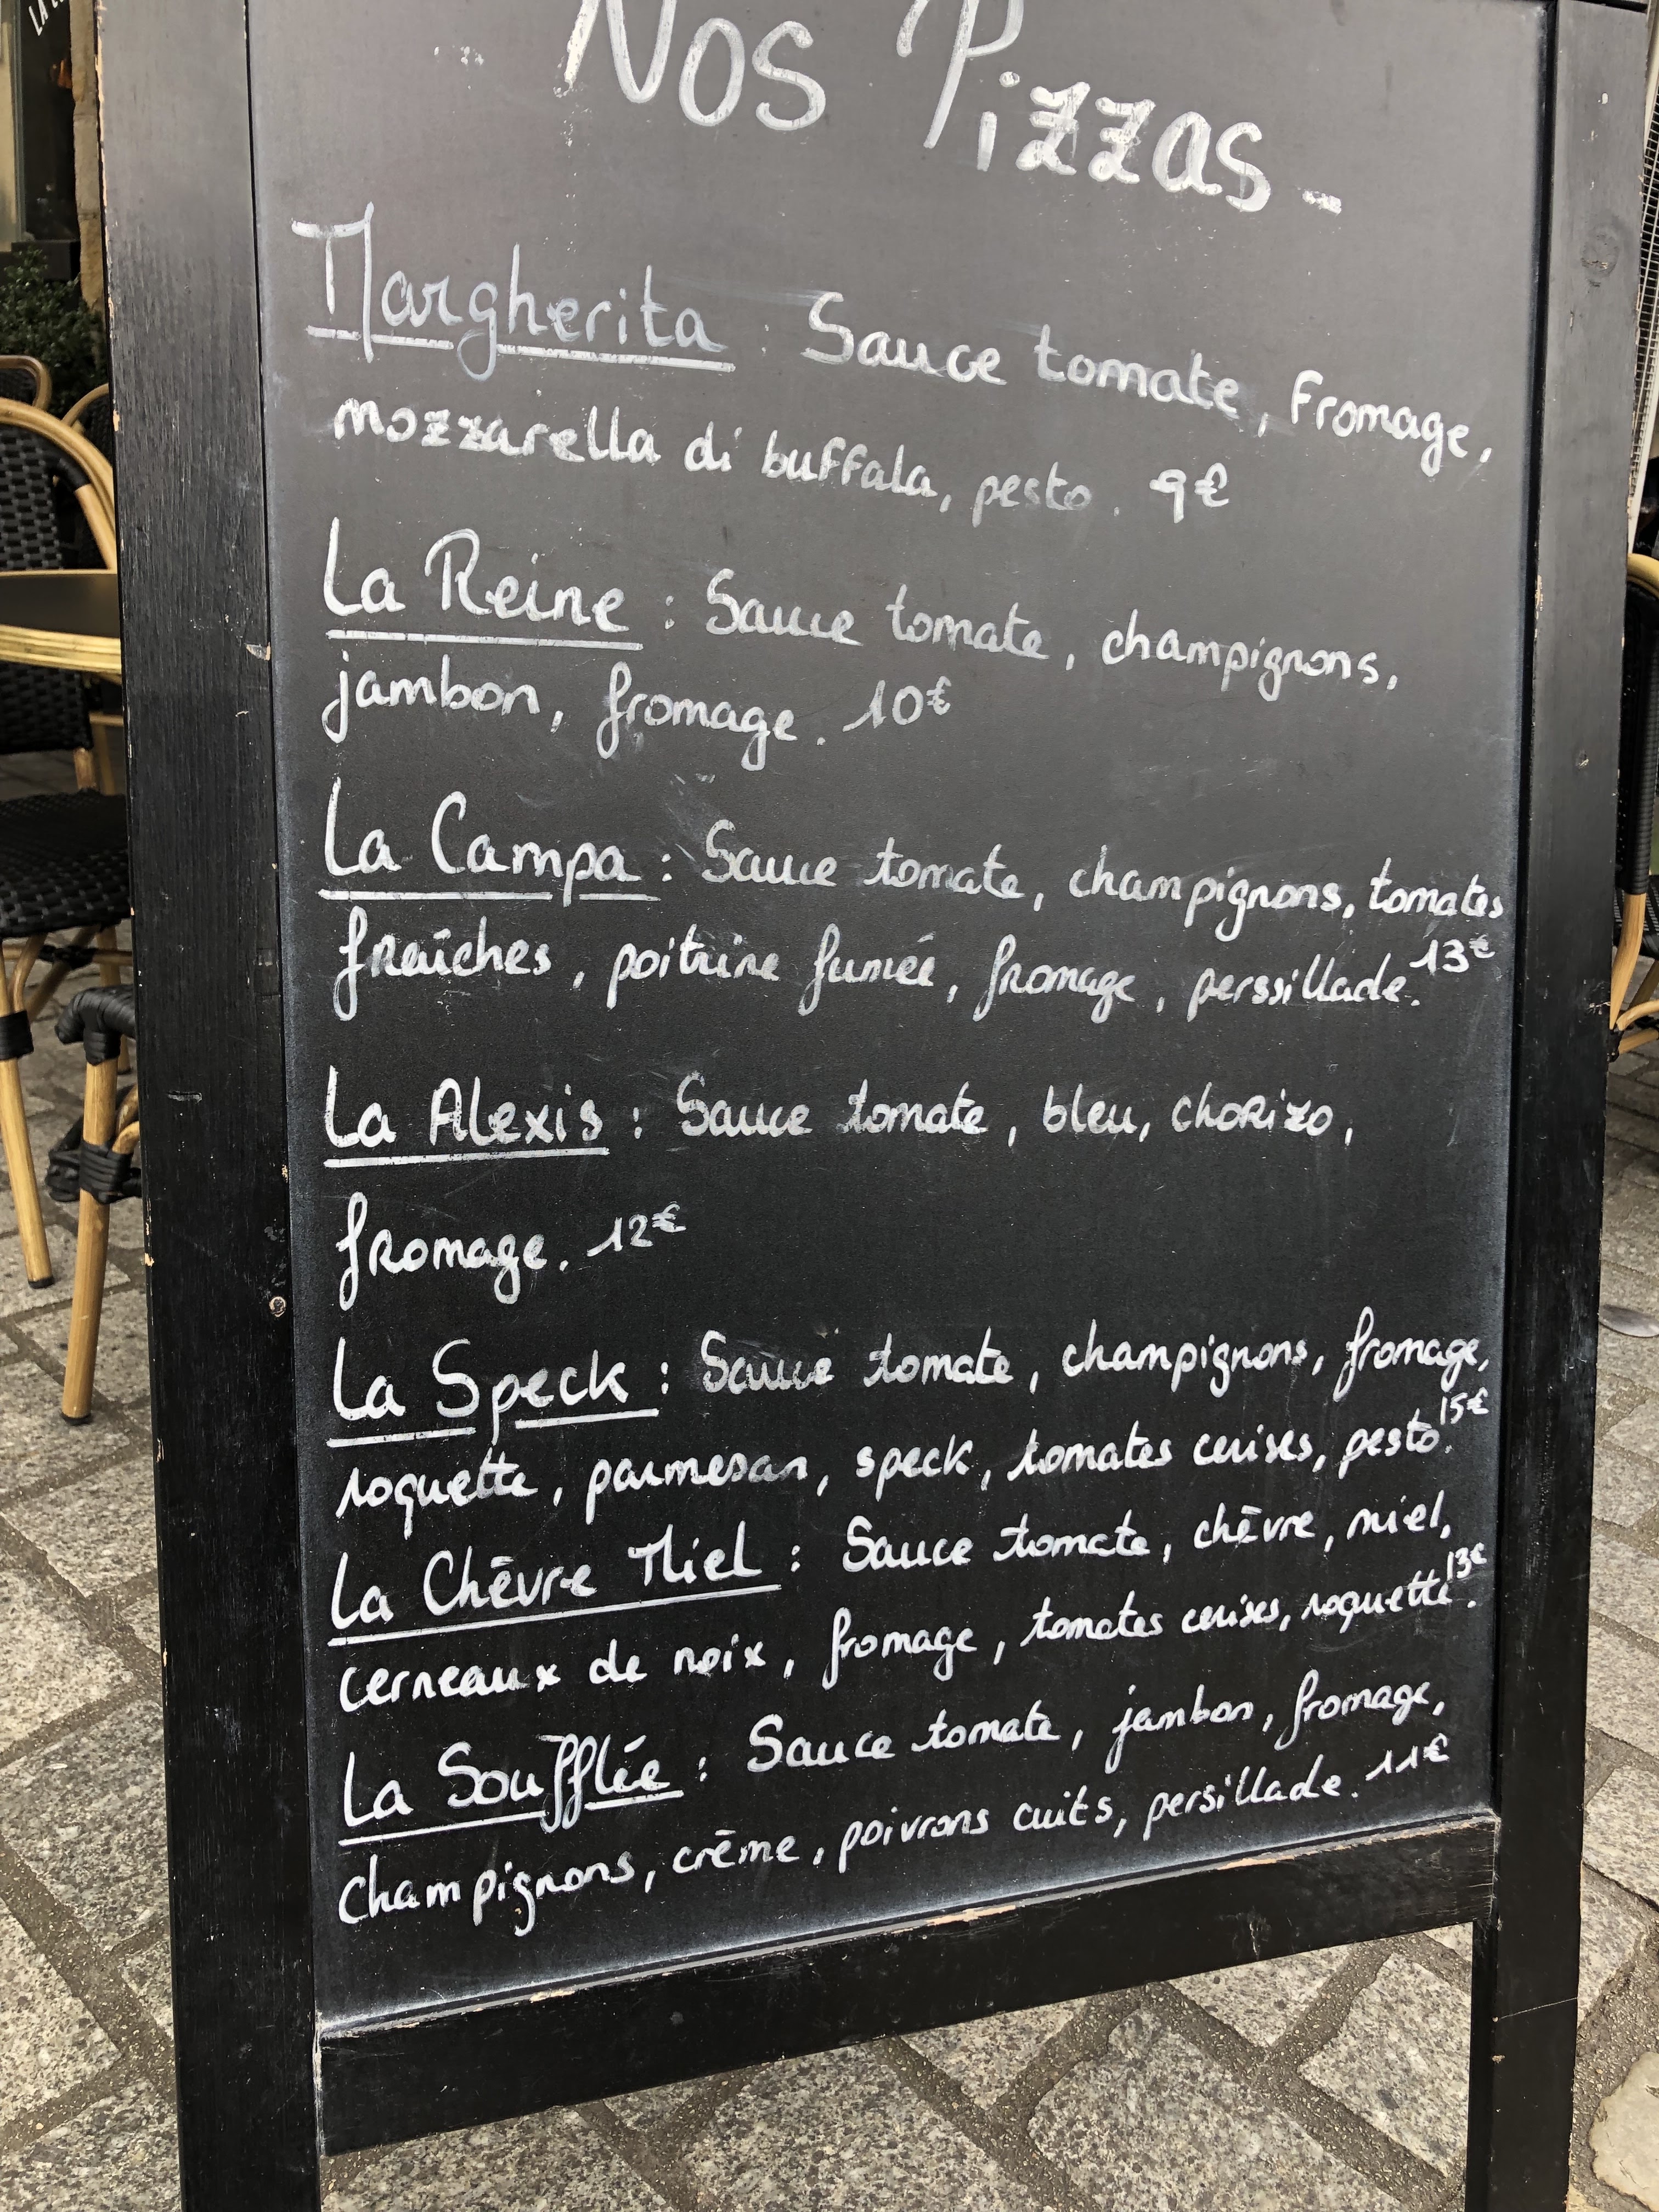 Nos Pizzas -
Margherita : Sauce tomate, Fromage,
mozzarella di buffala, pesto. 9€
La Reine : Sauce tomate, champignons,
jambon, fromage. 10€
La Campa : Sauce tomate, champignons, tomates
fraîches, poitrine fumée, fromage, perssillade. 13€
La Alexis : Sauce tomate, bleu, chorizo,
fromage. 12€
La Speck : Sauce tomate, champignons, fromage,
roquette, parmesan, speck, tomates cerises, pesto. 15€
La Chèvre Miel : Sauce tomate, chèvre, miel,
cerneaux de noix, fromage, tomates cerises, roquette. 13€
La Soufflée : Sauce tomate, jambon, fromage,
champignons, crème, poivrons cuits, persillade. 11€